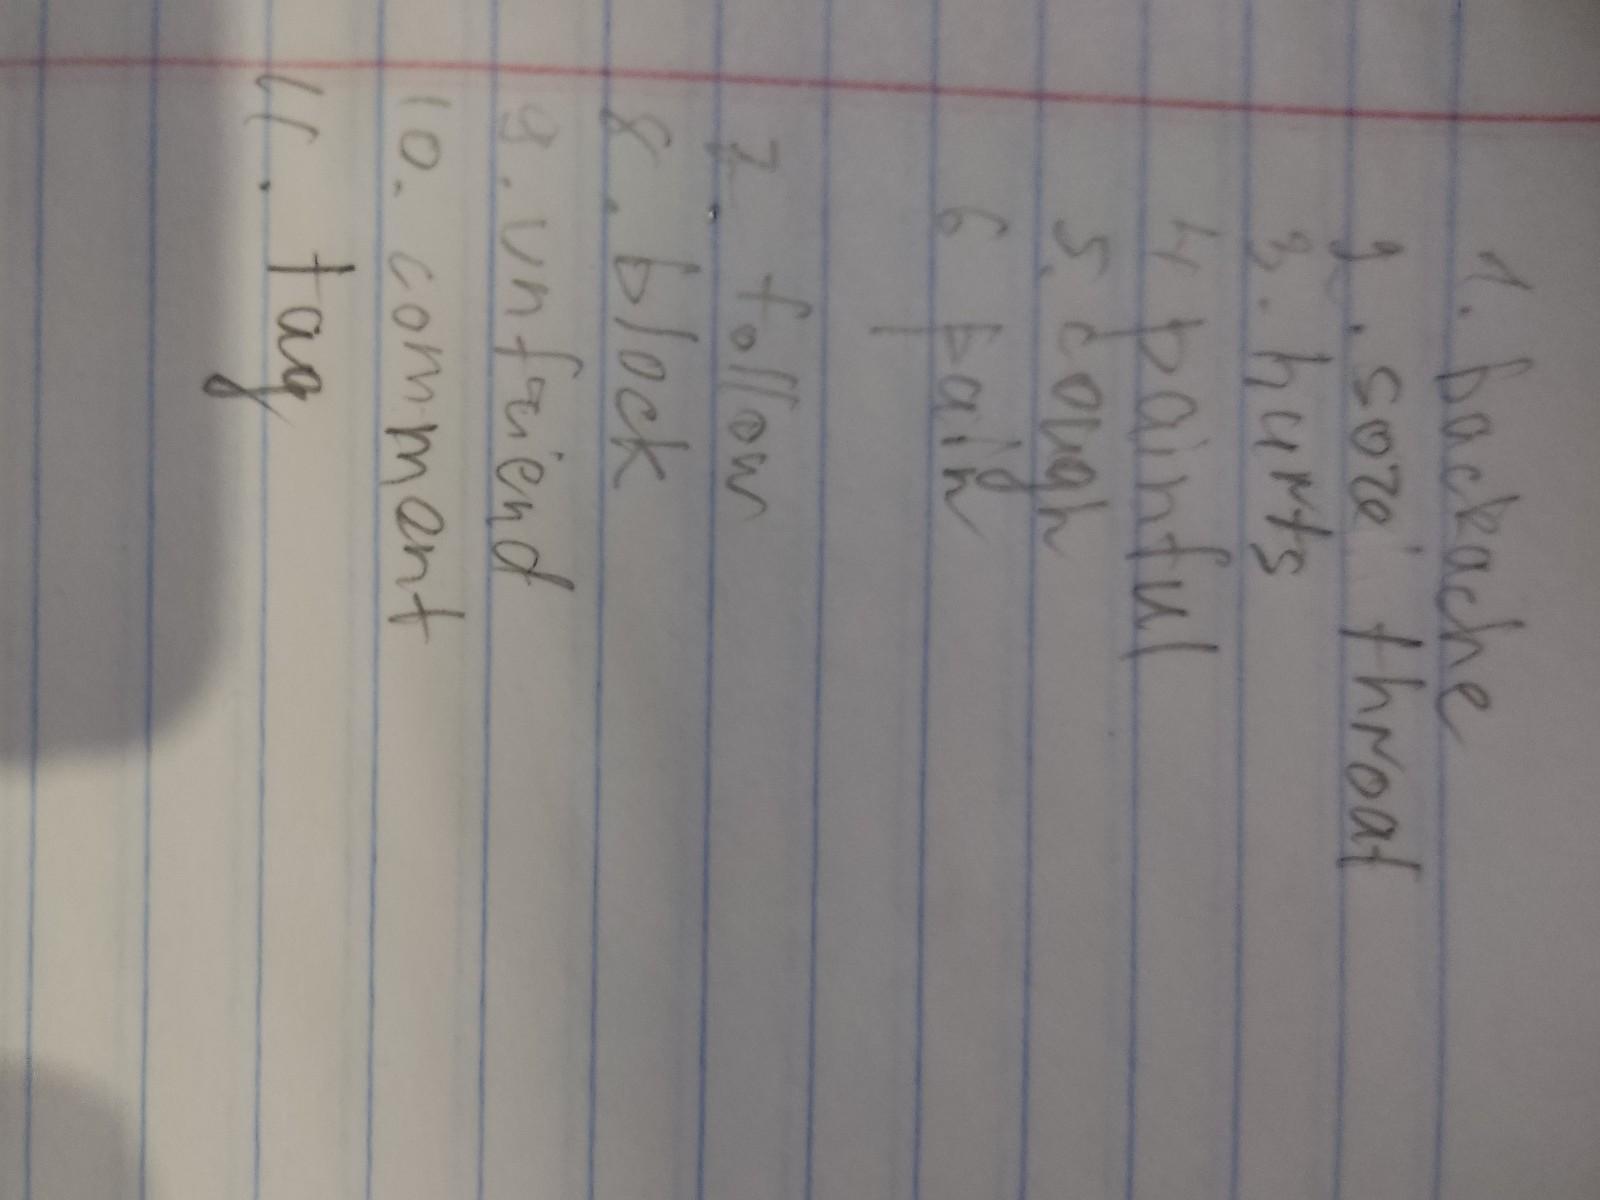 1. backache
2. sore throat
3. hurts
4. painful
5. cough
6 pain
7. follow
8. block
9. unfriend
10. commant
11. tag